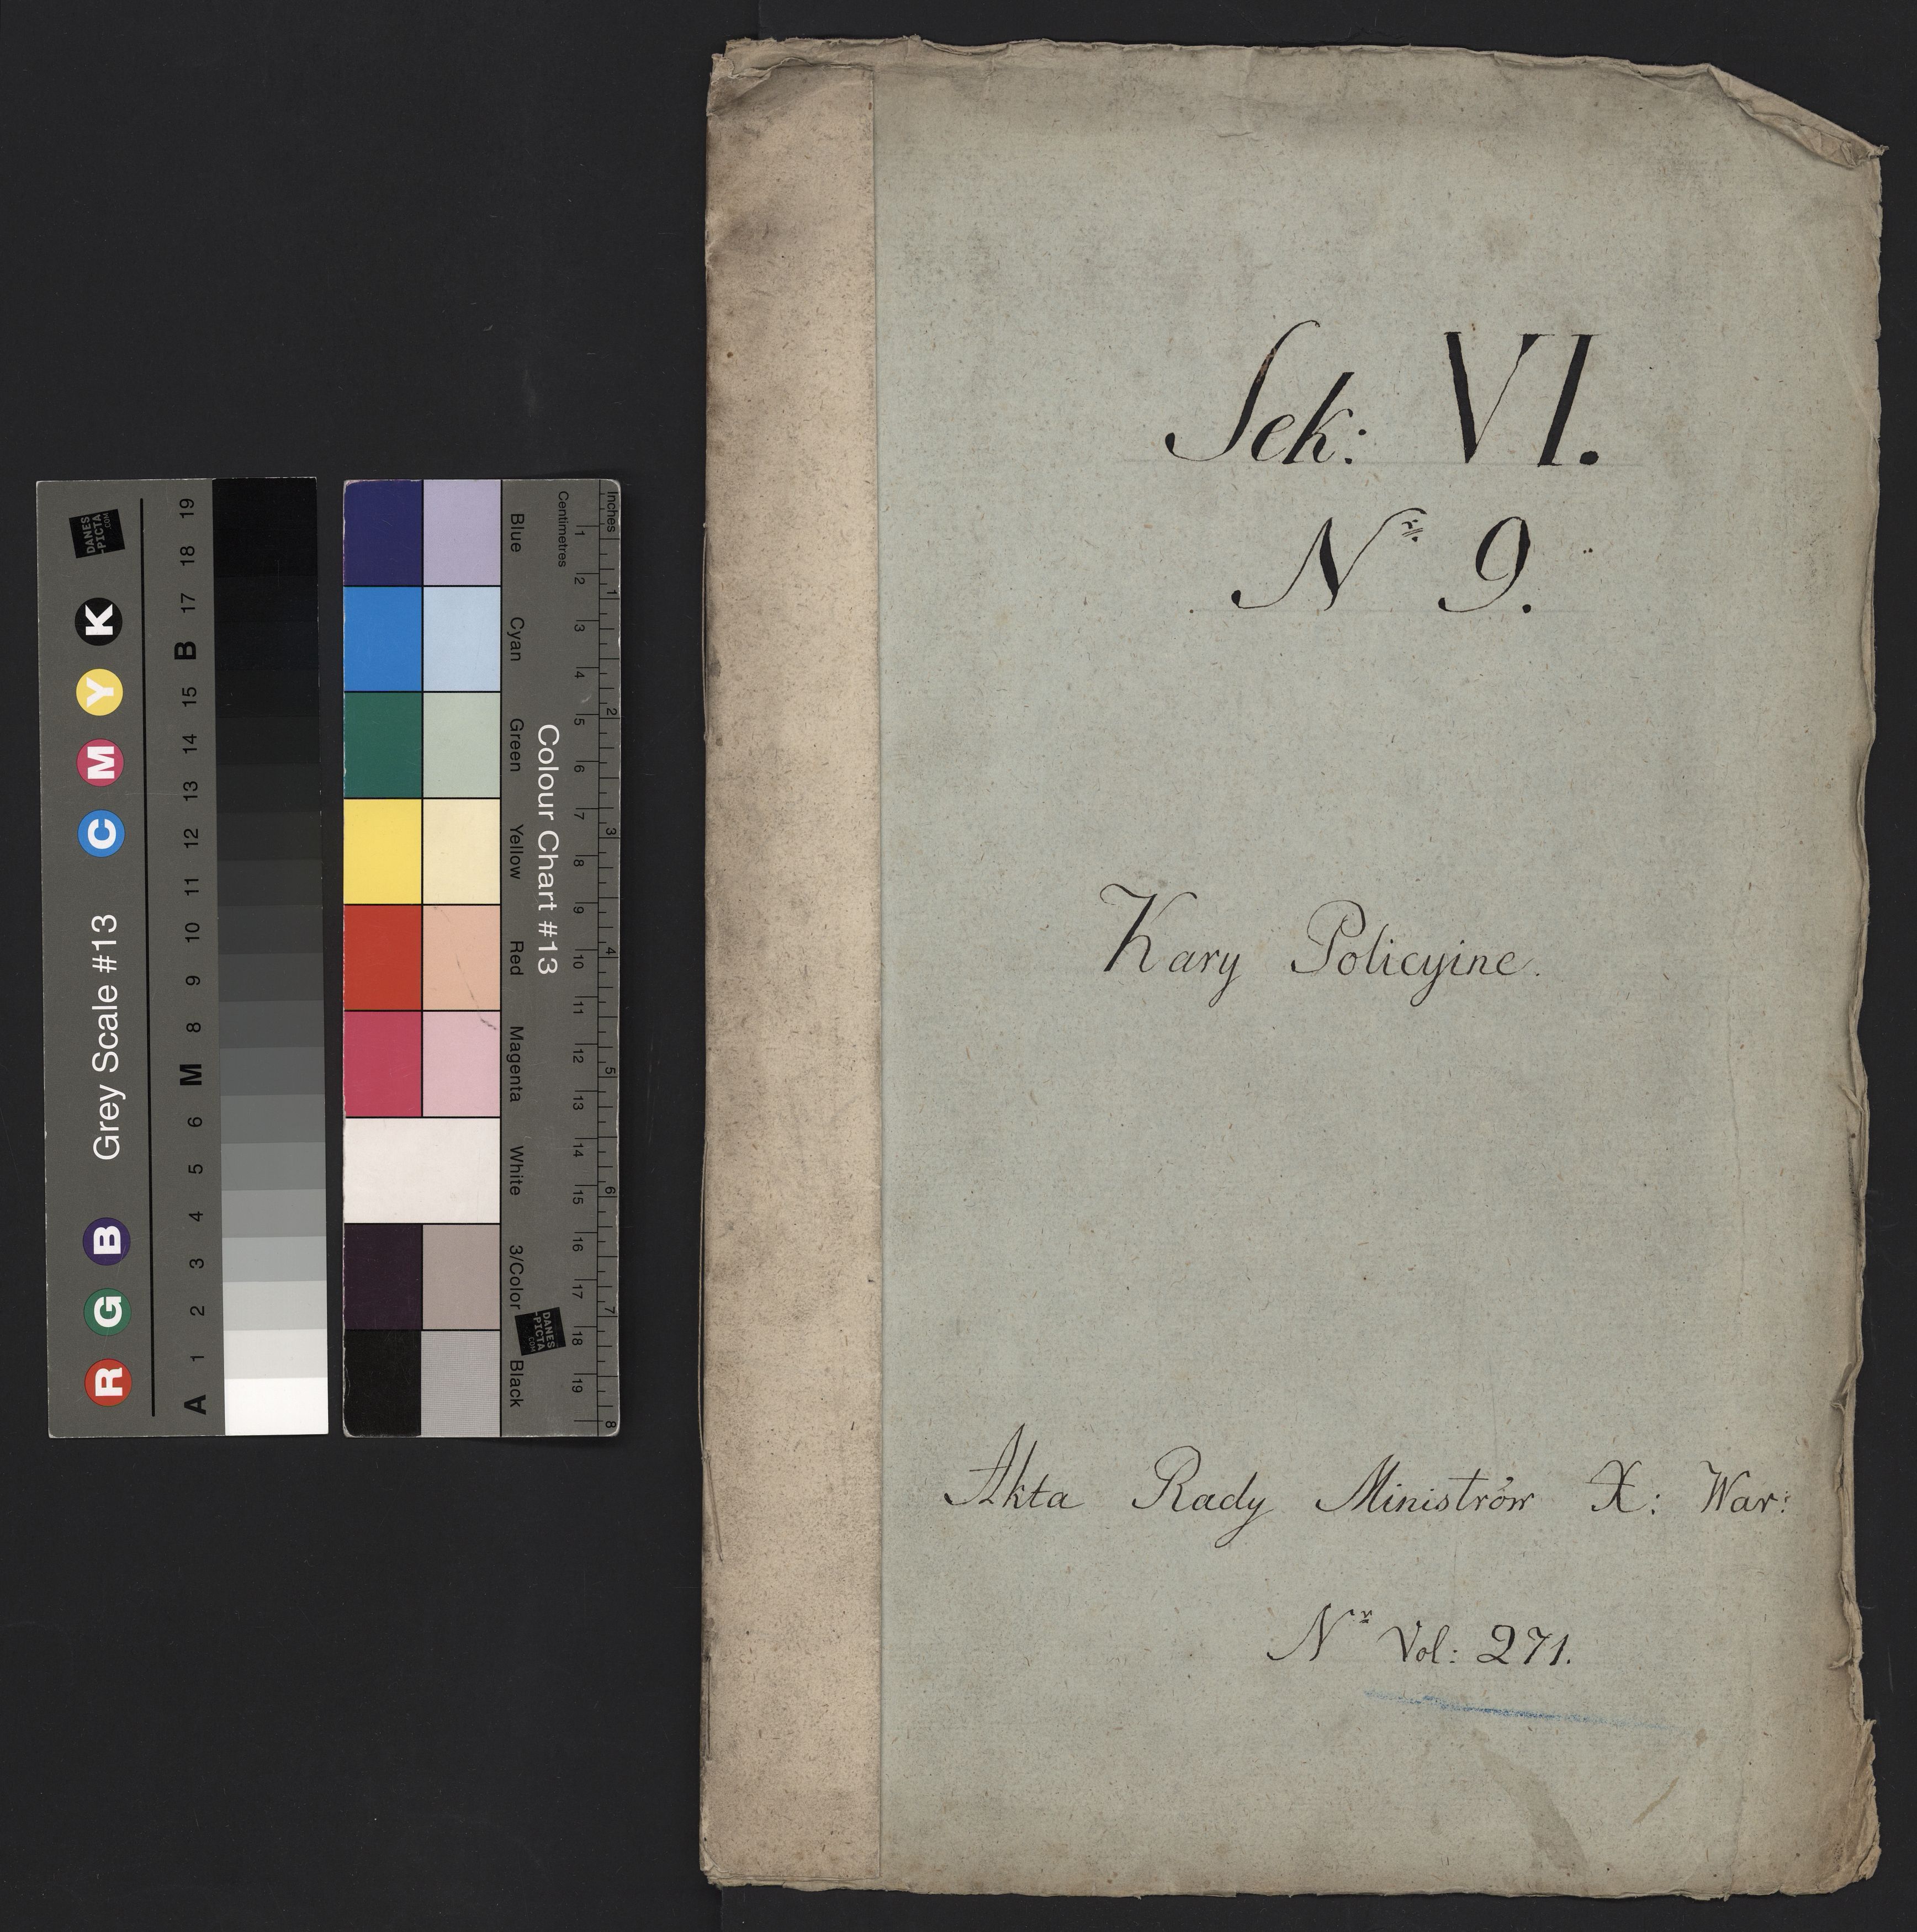 Sek: VI.
Nr. 9.
Kary Policyine.
Akta Rady Ministrów X: War:
Nr Vol: 271.
Grey Scale #13
R G B C M Y K
A 1 2 3 4 5 6 M 8 9 10 11 12 13 14 15 B 17 18 19
DANES
-PICTA
.COM
Colour Chart #13
Blue Cyan Green Yellow Red Magenta White 3/Color Black
Centimetres
1 2 3 4 5 6 7 8 9 10 11 12 13 14 15 16 17 18 19
Inches
1 2 3 4 5 6 7 8
DANES
-PICTA
.COM